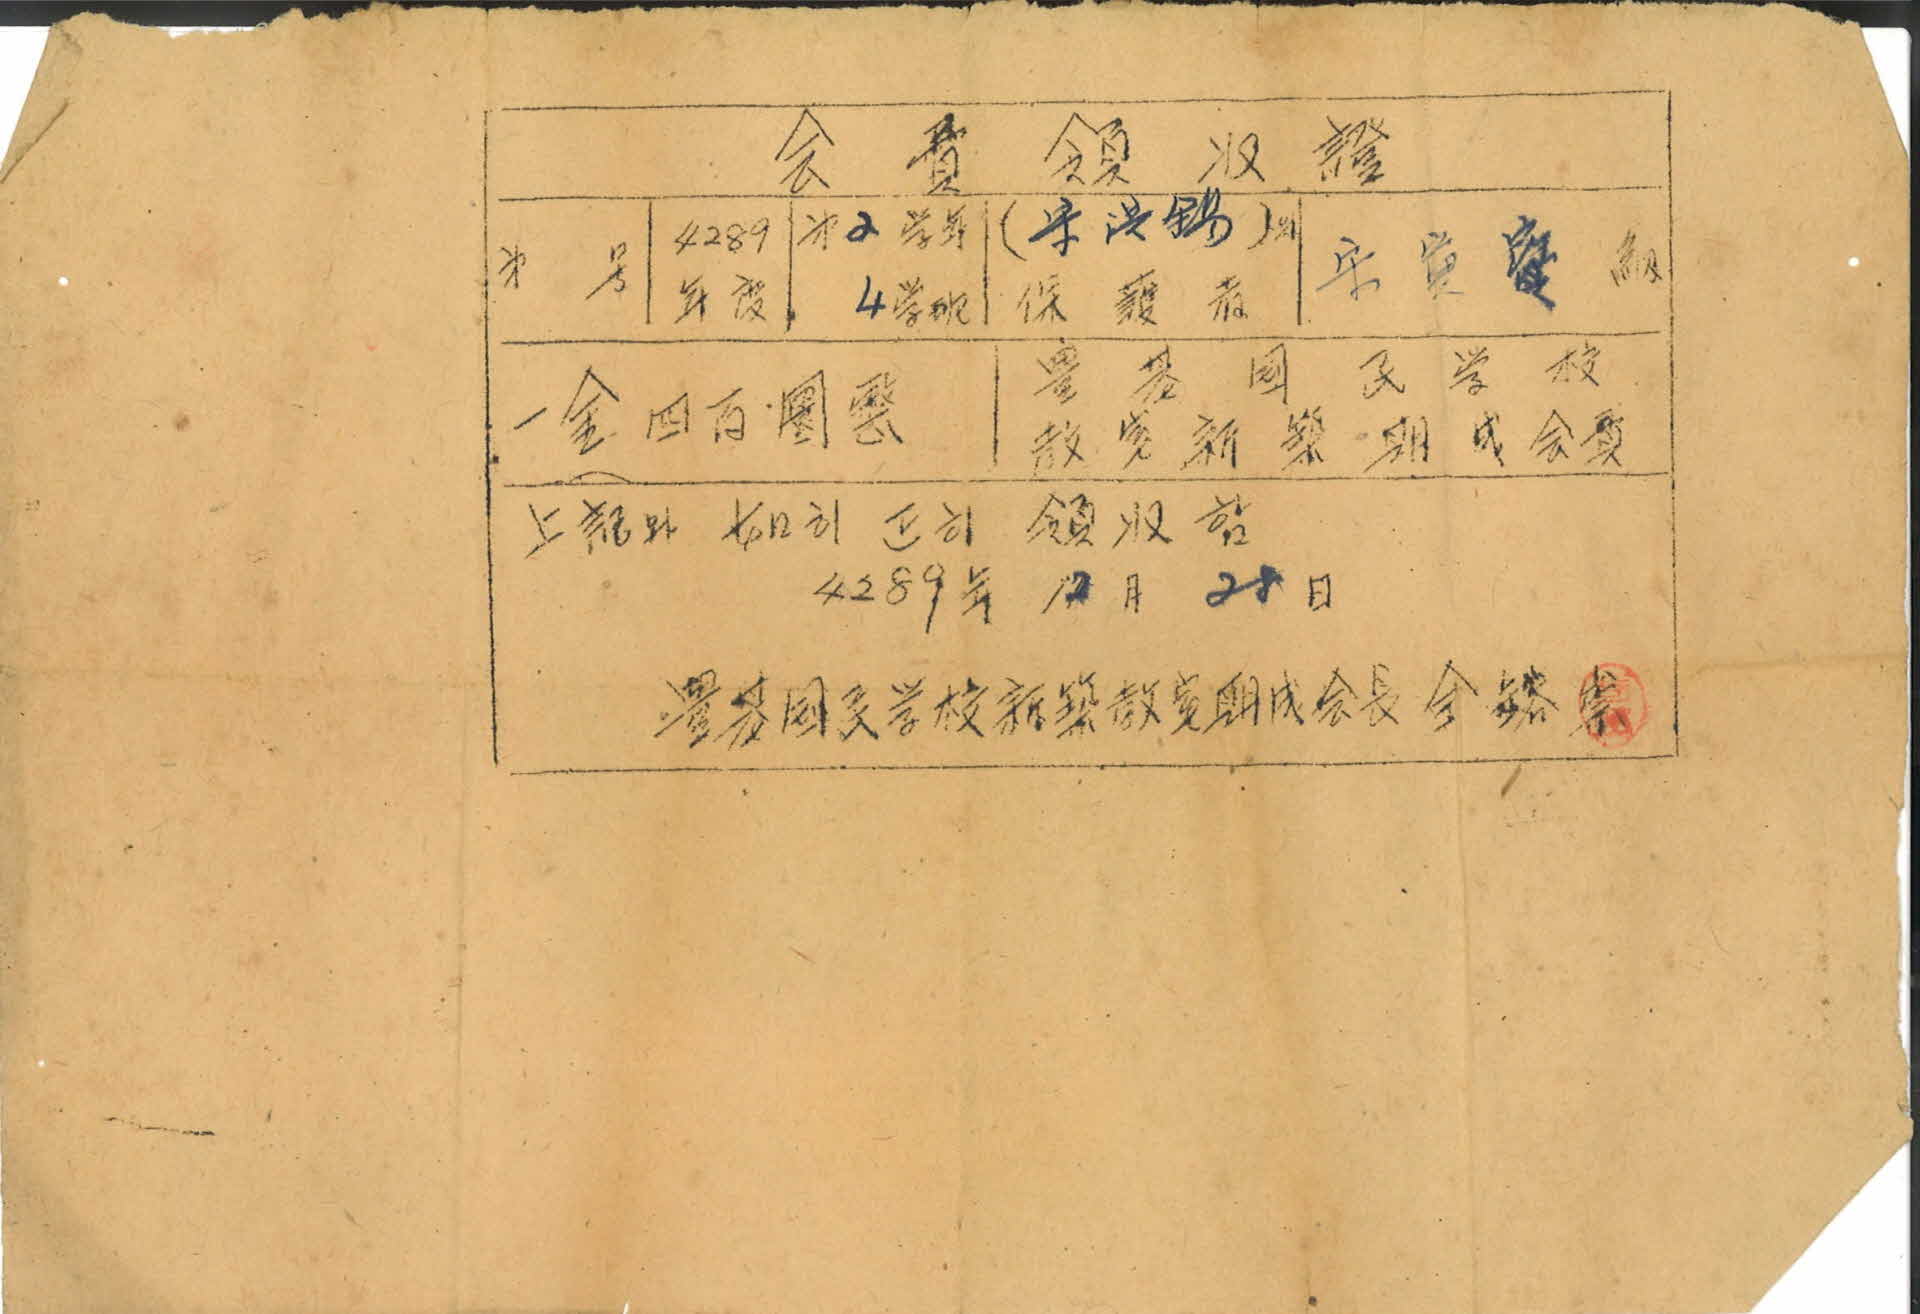 会費領収證
第 号
4289
年度
第2学年
4学班
(宋洪錫)의
保護者
宋 寅 納
一金四百圜整
豊基國民学校
教室新築期成会費
上記와 如히 正히 領收함
4289年 12月 28日
豊基國民学校新築教室期成会長 金